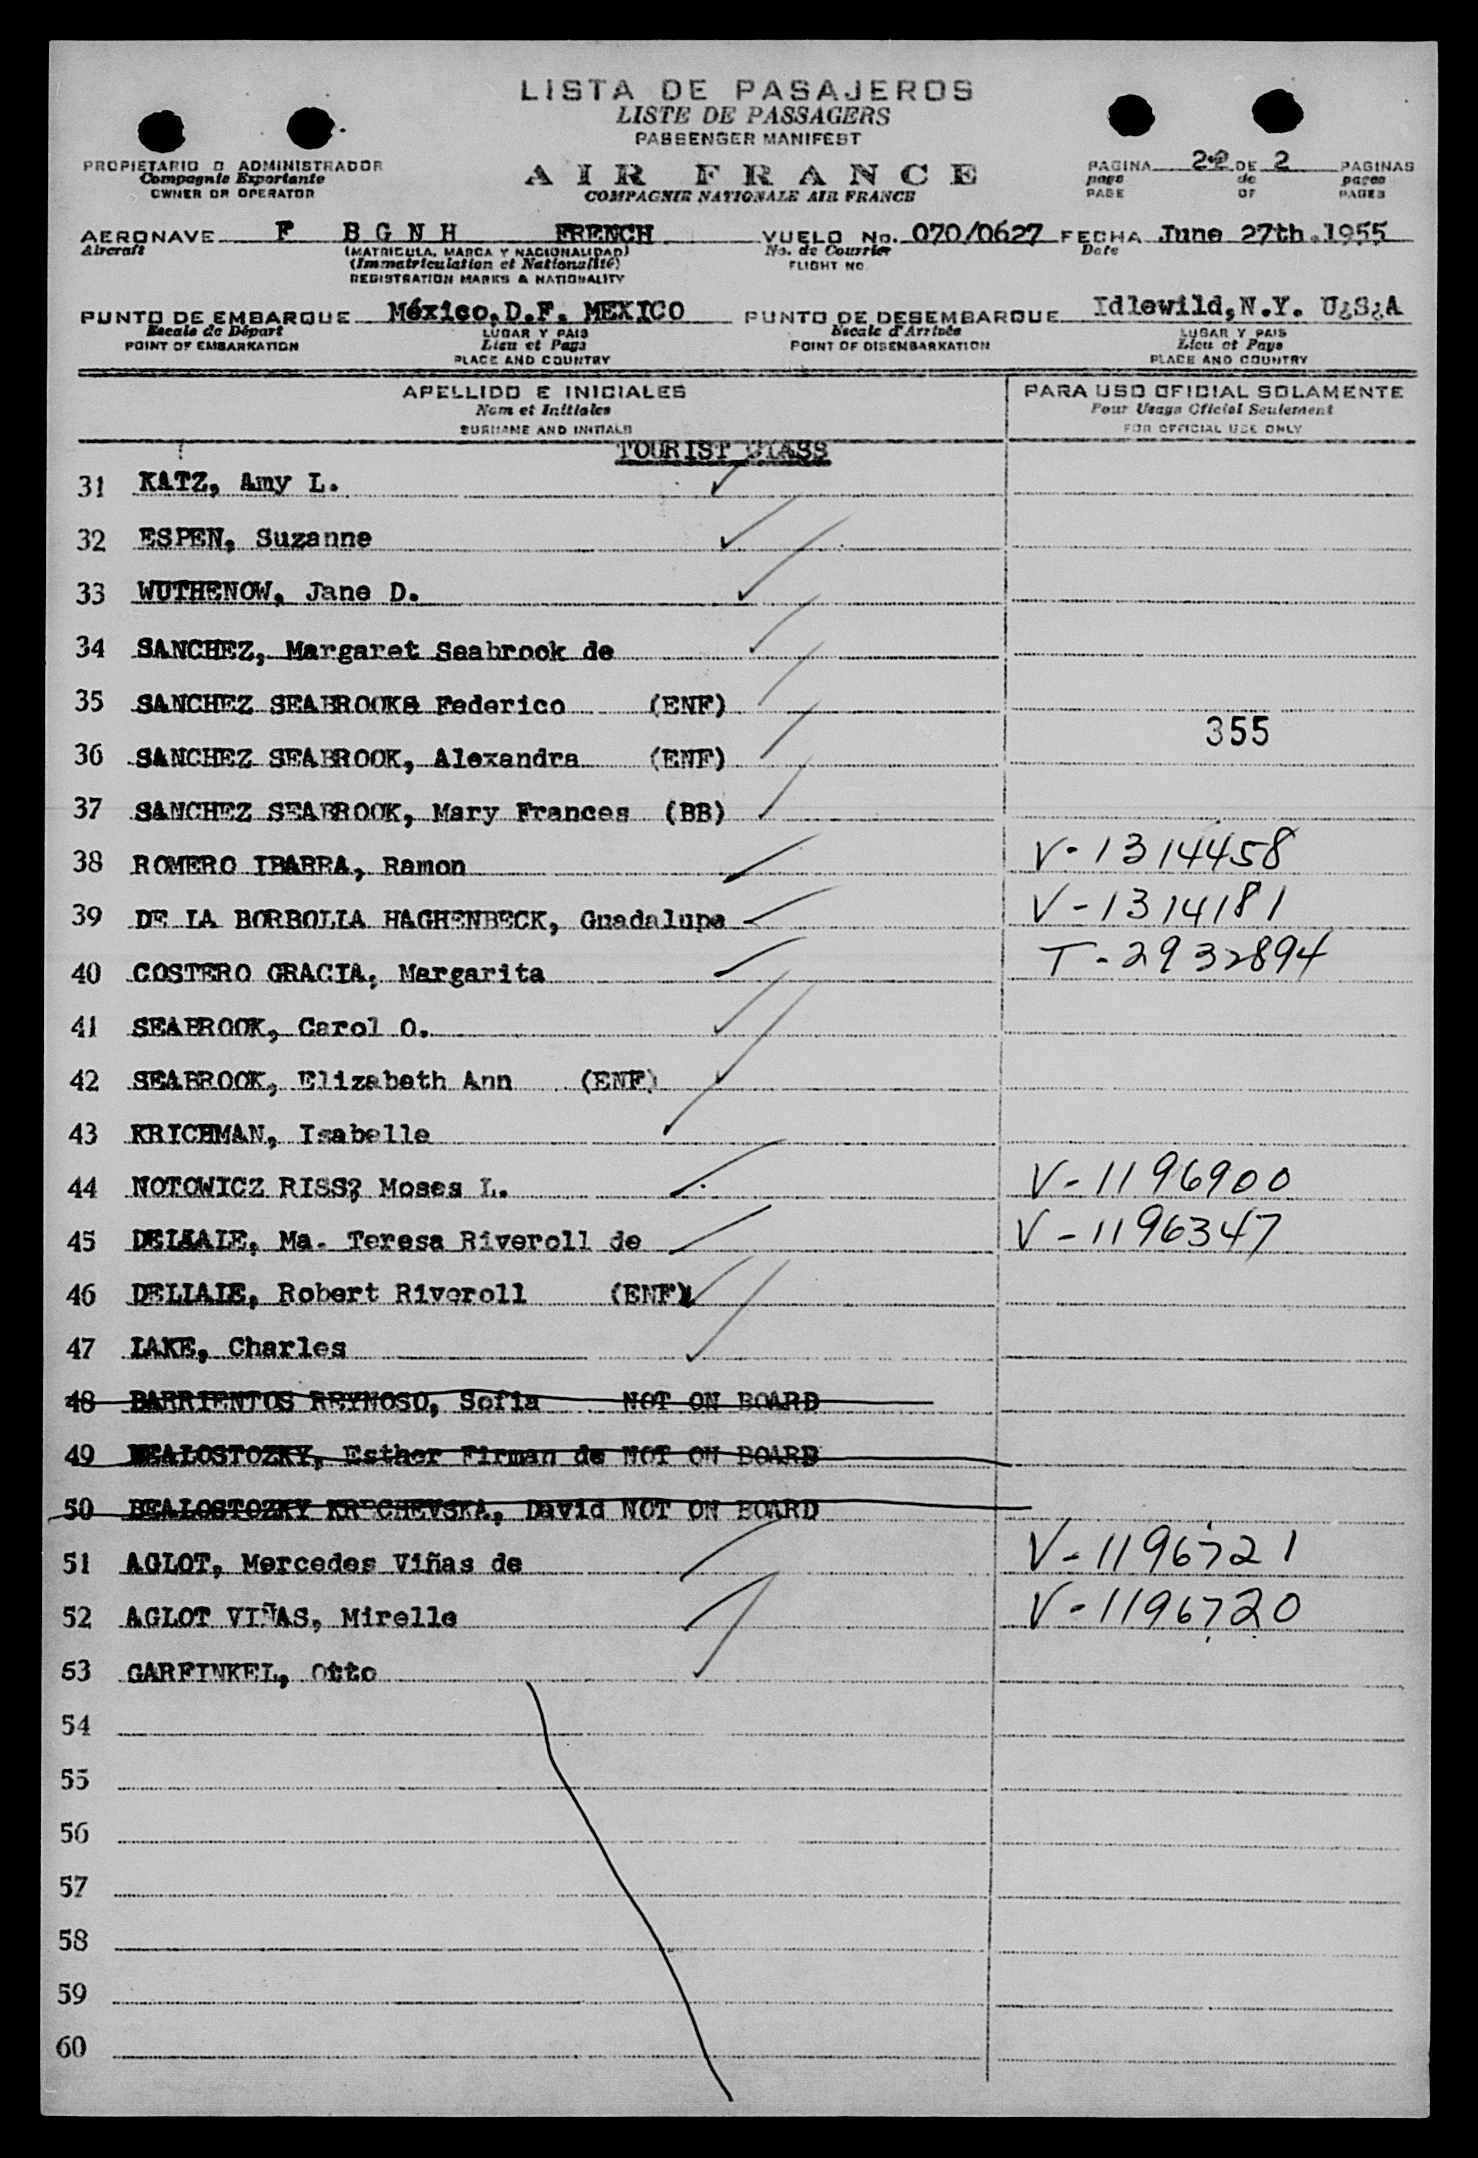 LISTA DE PASAJEROS
LISTE DE PASSAGERS
PASSENGER MANIFEST
PROPIETARIO O ADMINISTRADOR
Compagnie Exportante
OWNER OR OPERATOR
AIR FRANCE
COMPAGNIE NATIONALE AIR FRANCE
PAGINA 2 DE 2 PAGINAS
page de pages
PAGE OF PAGES
AERONAVE F BGNH FRENCH VUELO No. 070/0627 FECHA June 27th.1955
Aircraft (MATRICULA, MARCA Y NACIONALIDAD) No. de Courrier Date
(Immatriculation et Nationalité) FLIGHT NO
REGISTRATION MARKS & NATIONALITY
PUNTO DE EMBARQUE México,D.F. MEXICO PUNTO DE DESEMBARQUE Idlewild,N.Y. U¿S¿A
Escale de Départ LUGAR Y PAIS Escale d'Arrivée LUGAR Y PAIS
POINT OF EMBARKATION Lieu et Pays POINT OF DISEMBARKATION Lieu et Pays
PLACE AND COUNTRY PLACE AND COUNTRY
APELLIDO E INICIALES PARA USO OFICIAL SOLAMENTE
Nom et Initiales Pour Usage Oficiel Seulement
SURNAME AND INITIALS FOR OFFICIAL USE ONLY
TOURIST CLASS
31 KATZ, Amy L.
32 ESPEN, Suzanne
33 WUTHENOW, Jane D.
34 SANCHEZ, Margaret Seabrook de
35 SANCHEZ SEABROOK Federico (ENF)
355
36 SANCHEZ SEABROOK, Alexandra (ENF)
37 SANCHEZ SEABROOK, Mary Frances (BB)
38 ROMERO IBARRA, Ramon V-1314458
39 DE LA BORBOLLA HAGHENBECK, Guadalupe V-1314181
40 COSTERO GRACIA, Margarita T-2932894
41 SEABROOK, Carol O.
42 SEABROOK, Elizabeth Ann (ENF)
43 KRICHMAN, Isabelle
44 NOTOWICZ RISS? Moses L. V-1196900
45 DELIAIE, Ma. Teresa Riveroll de V-1196347
46 DELIAIE, Robert Riveroll (ENF)
47 LAKE, Charles
48 BARRIENTOS REYNOSO, Sofia NOT ON BOARD
49 BEALOSTOZKY, Esther Firman de NOT ON BOARD
50 BEALOSTOZKY KRECHEVSKA, David NOT ON BOARD
51 AGLOT, Mercedes Viñas de V-1196721
52 AGLOT VIÑAS, Mirelle V-1196720
53 GARFINKEL, Otto
54
55
56
57
58
59
60